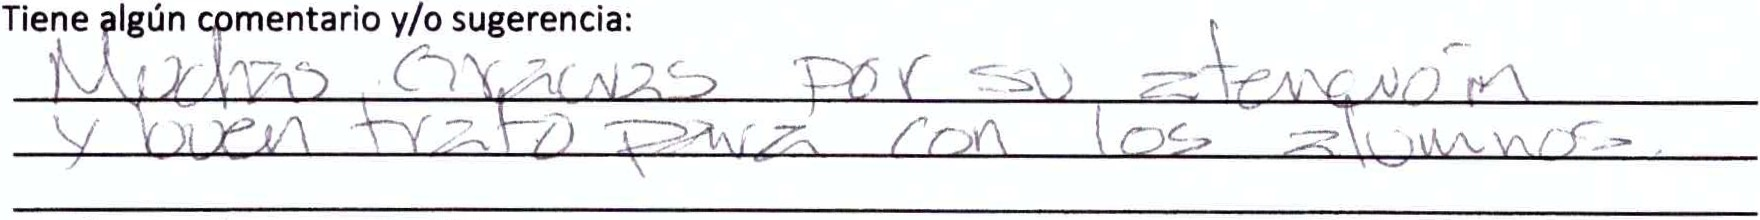 Tiene algún comentario y/o sugerencia:
Muchas Gracias por su atención
y buen trato para con los alumnos.